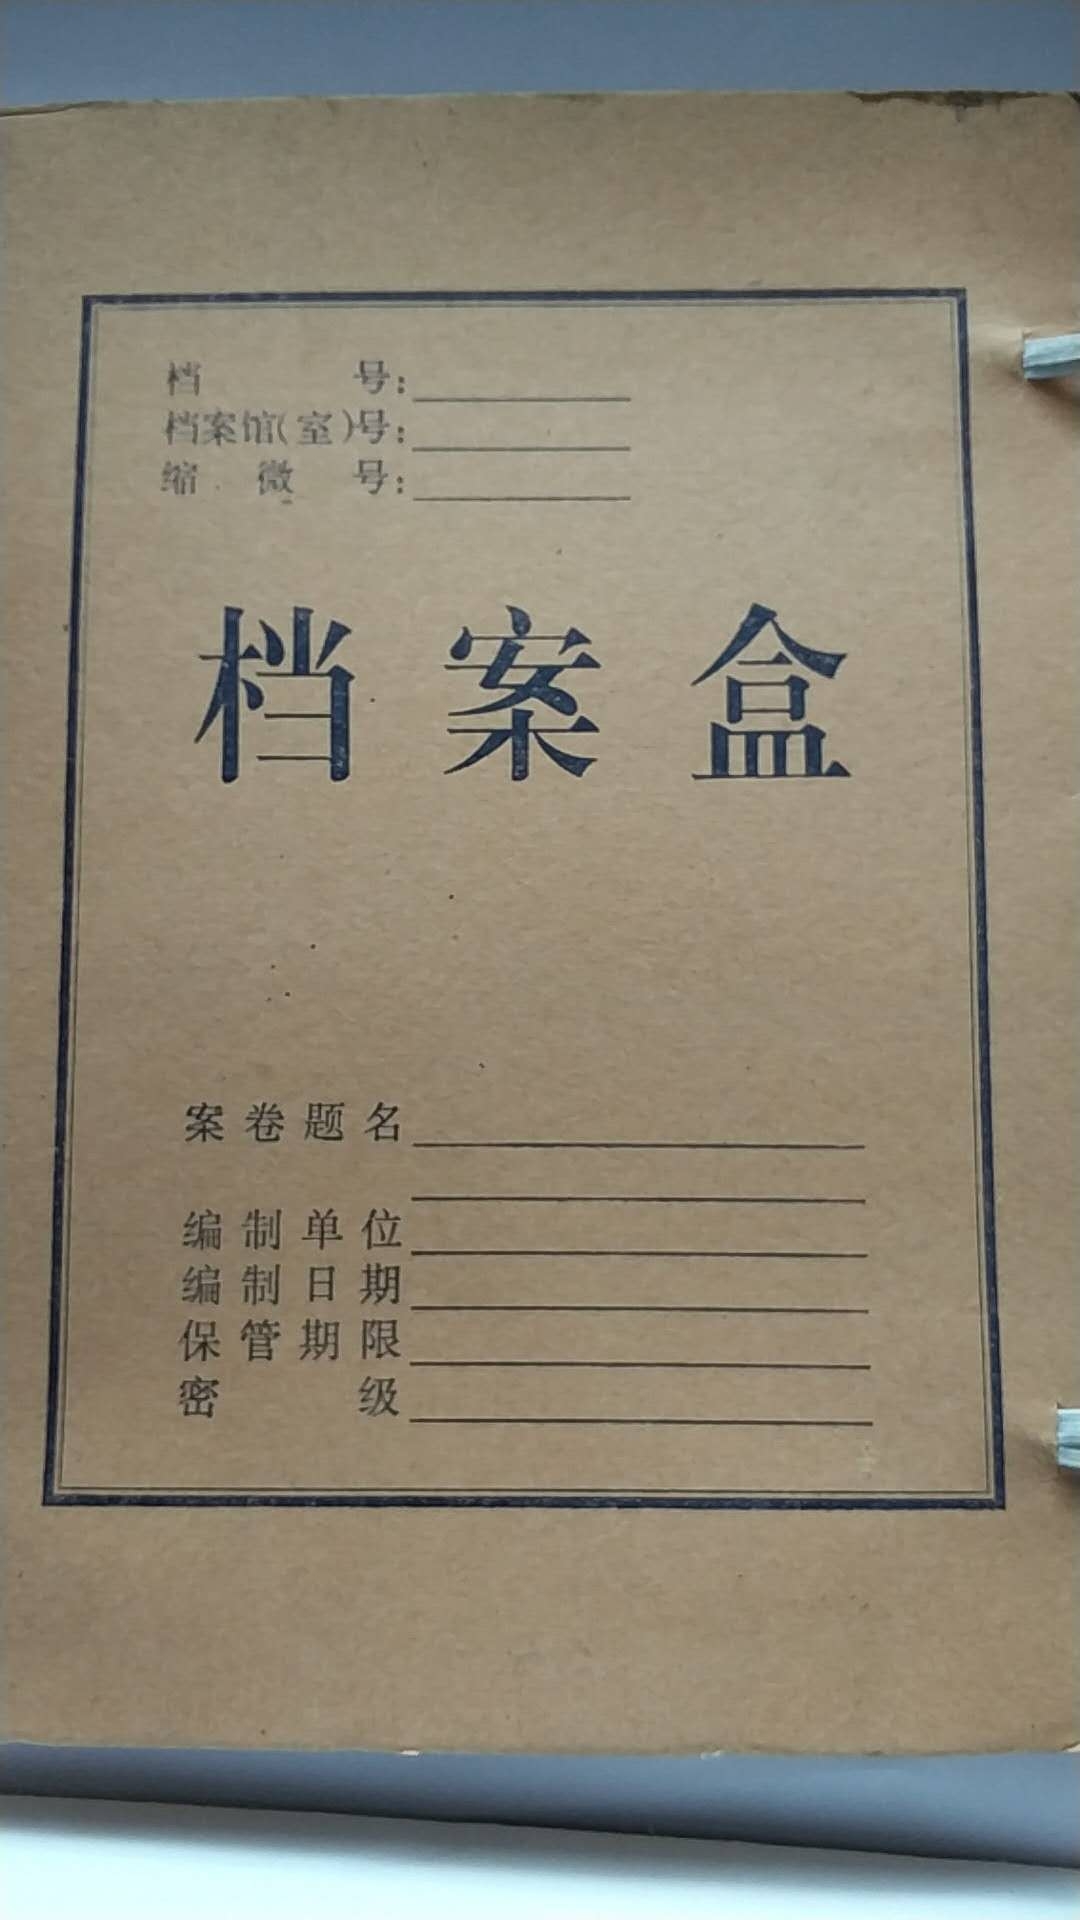 档号:
档案馆(室)号:
缩微号:
档案盒
案卷题名
编制单位
编制日期
保管期限
密级